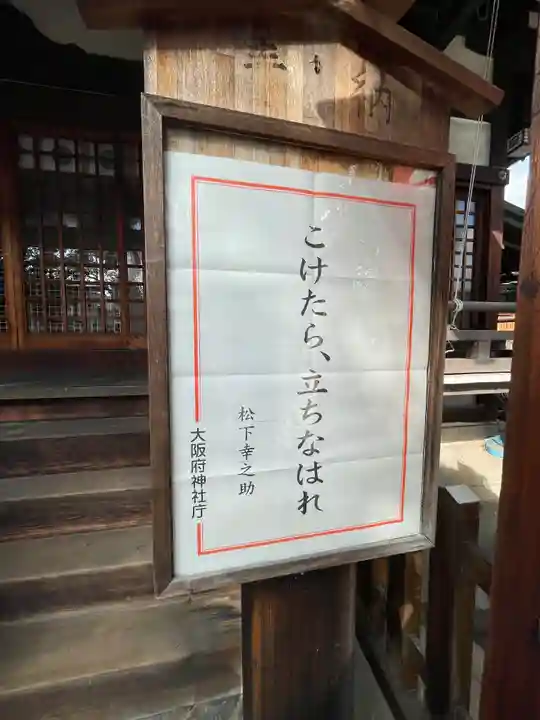 こけたら、立ちなはれ
松下幸之助
大阪府神社庁
納